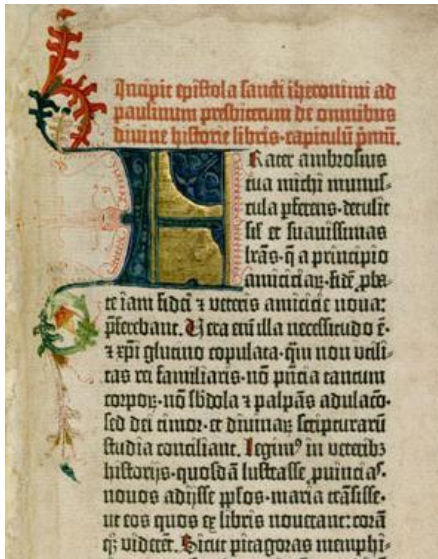 Incipit epistola sancti iheronimi ad
paulinum presbiterum de omnibus
divine historie libris·capitulū p̄mū.
Frater ambrosius
tua michi munus-
cula pferens·detulit
sil̄ et suavissimas
lrās·q̄ a principio
amiciciaꝝ·fidē pba-
te iam fidei ⁊ veteris amicicie nova:
pferebant. Vera enī illa necessitudo ē·
⁊ xpi glutino copulata·qm̄ non utili-
tas rei familiaris·nō p̄ncia tantum
corpoꝝ·nō sb̄dola ⁊ palpās adulacō·
sed dei timor·et divinaꝝ scripturarū
studia conciliant. Legimꝰ in veteribꝫ
historijs·quosdā lustrasse ꝓvincias·
novos adijsse pp̄los·maria trāsisse·
ut eos quos ex libris noverant: corā
qꝫ viderēt. Sicut pitagoras memphi-